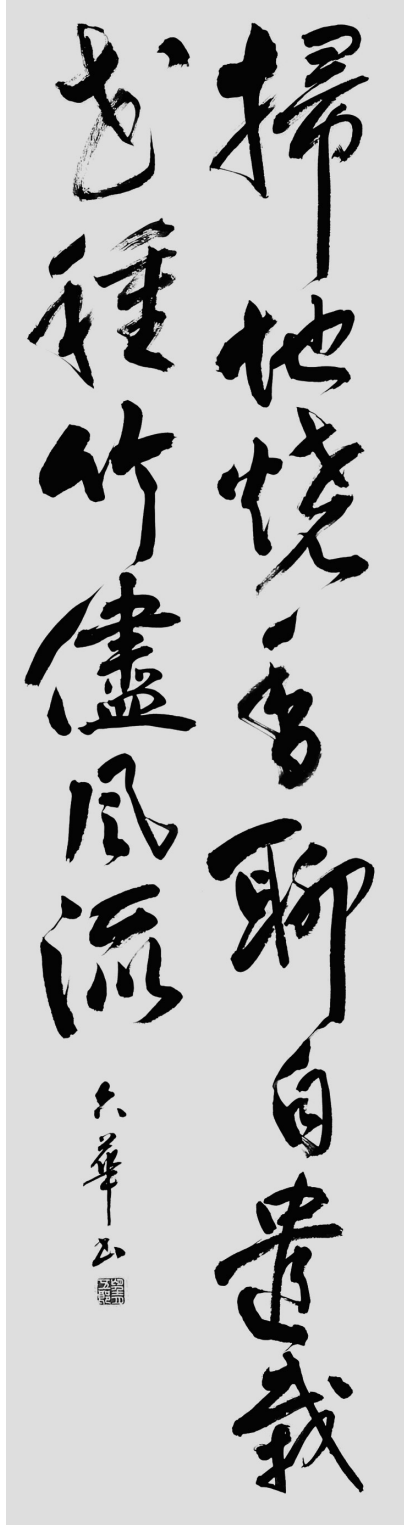 掃地燒香聊自遣栽
花種竹儘風流
六華书